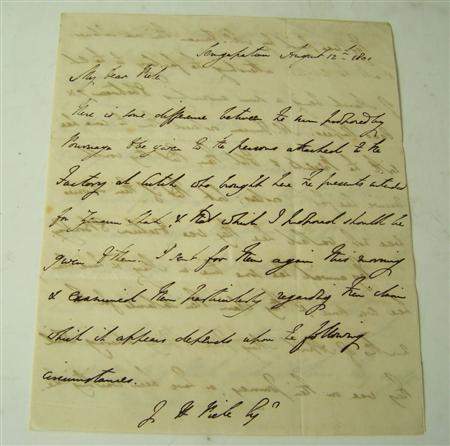 Seringapatam August 12th 1801
My dear Piele
There is some difference between the sum proposed by
Pournaya to be given to the persons attached to the
Factory at Cutch who brought here the presents intended
for Futteh & that which I proposed should be
given to them. I sent for them again this morning
& examined them particularly regarding their claim
which it appears depends upon the following
circumstances.
J H Piele Esqr